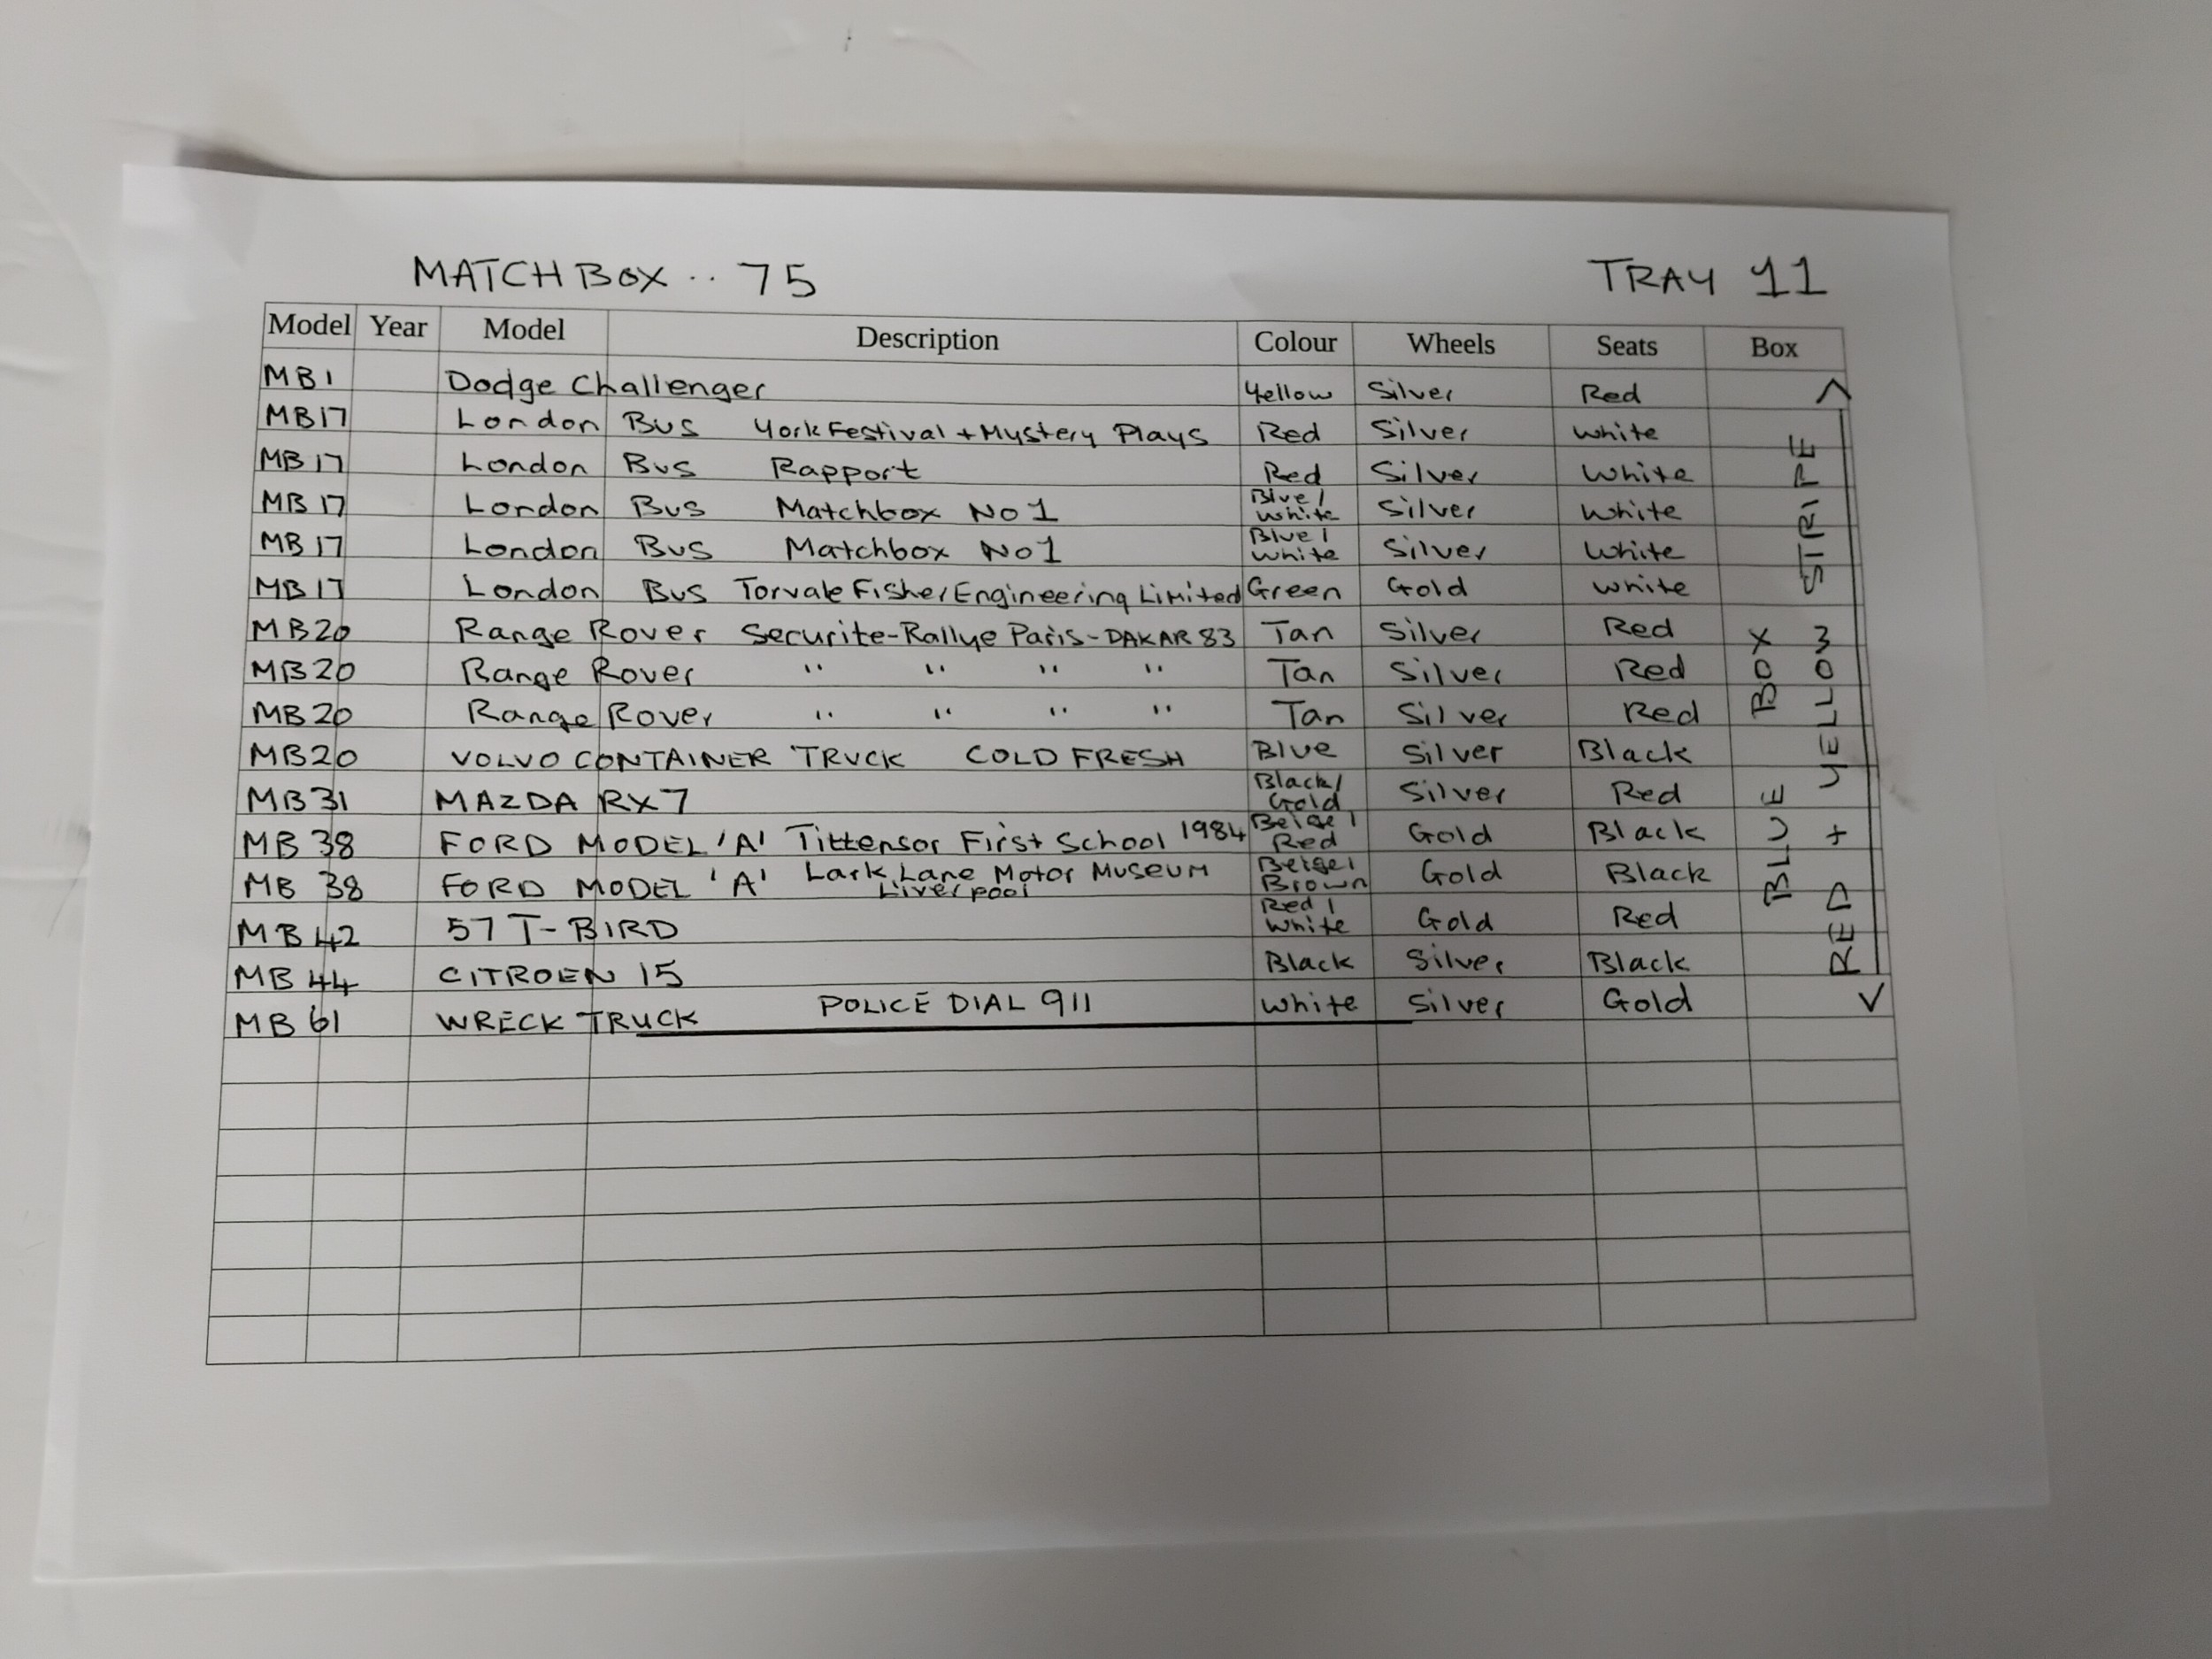 MATCHBOX .. 75 TRAY 11
Model Year Model Description Colour Wheels Seats Box
MB1 Dodge Challenger Yellow Silver Red
MB17 London Bus York Festival + Mystery Plays Red Silver White
MB17 London Bus Rapport Red Silver White
MB17 London Bus Matchbox No1 Blue/White Silver White
MB17 London Bus Matchbox No1 Blue/White Silver White
MB17 London Bus Torvale Fisher Engineering Limited Green Gold White
MB20 Range Rover Securite-Rallye Paris-DAKAR 83 Tan Silver Red
MB20 Range Rover " " " " Tan Silver Red
MB20 Range Rover " " " " Tan Silver Red
MB20 VOLVO CONTAINER TRUCK COLD FRESH Blue Silver Black
MB31 MAZDA RX7 Black/Gold Silver Red
MB38 FORD MODEL 'A' Tittensor First School 1984 Beige/Red Gold Black
MB 38 FORD MODEL 'A' Lark Lane Motor Museum Liverpool Beige/Brown Gold Black
MB42 57 T-BIRD Red/White Gold Red
MB44 CITROEN 15 Black Silver Black
MB61 WRECK TRUCK POLICE DIAL 911 White Silver Gold
BLUE BOX
RED + YELLOW STRIPE